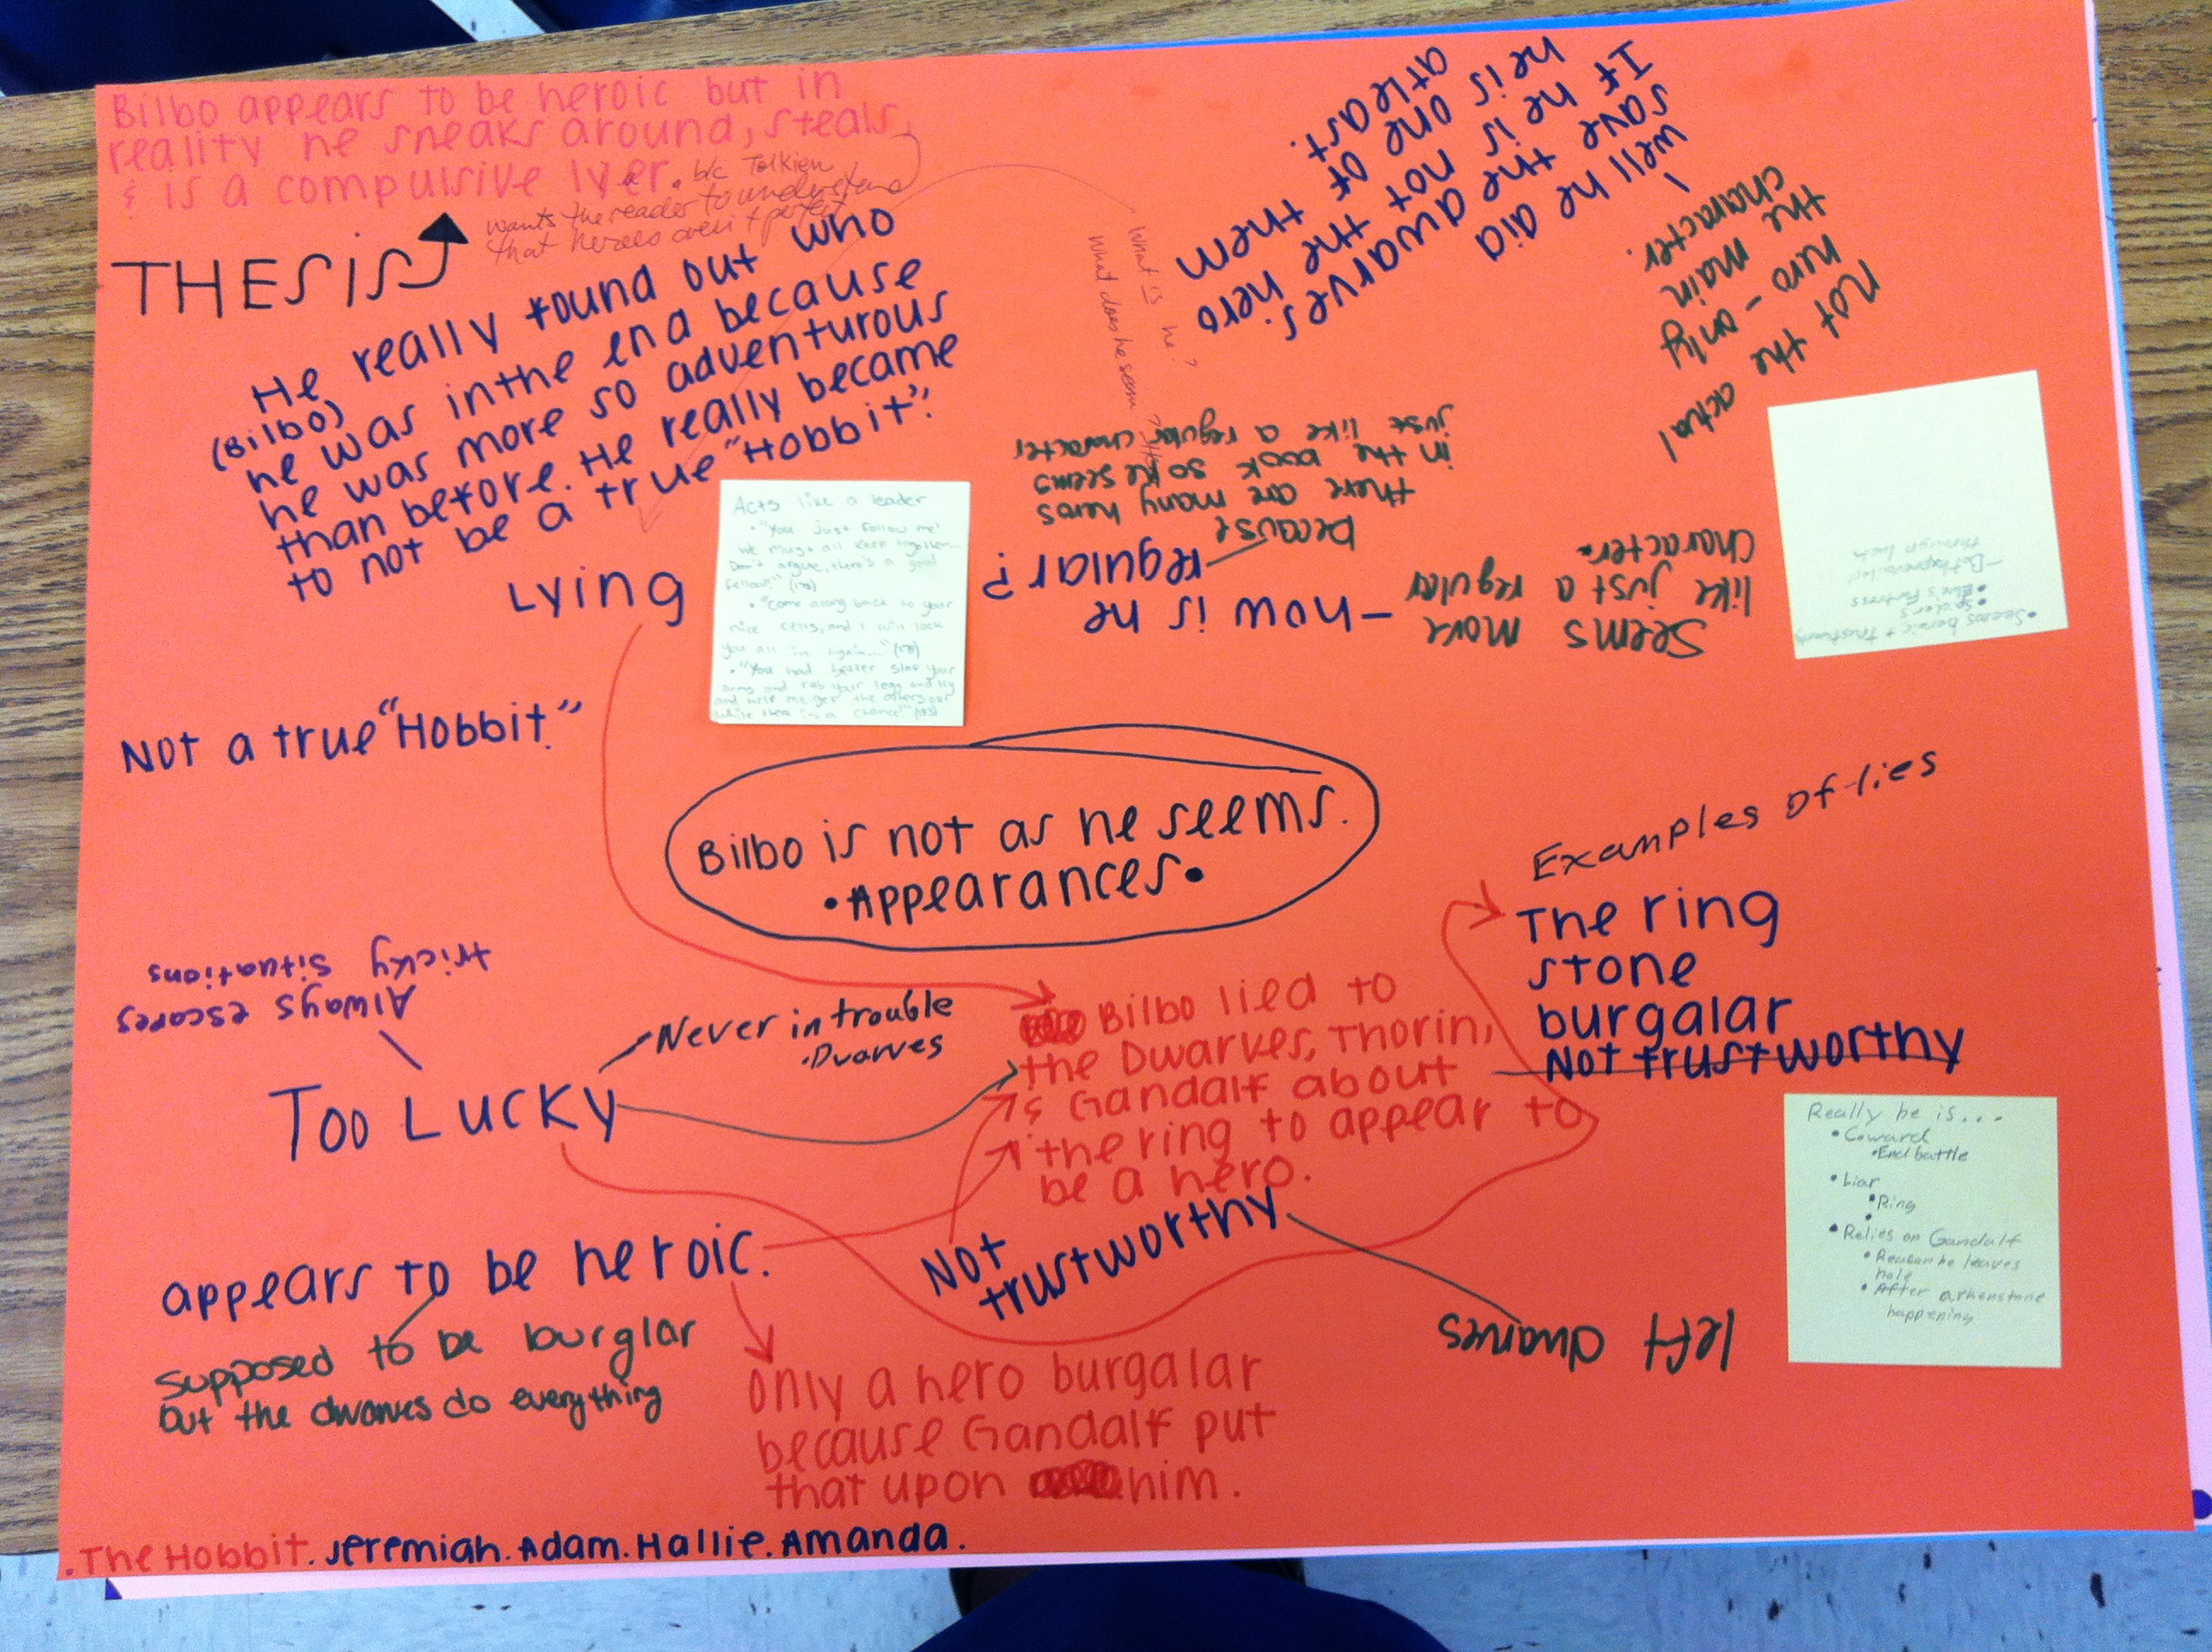 Bilbo appears to be heroic but in
reality he sneaks around, steals,
& is a compulsive lyer.
b/c Tolkien
wants the reader to understand
that heroes aren't perfect
THESIS
He really found out who
(Bilbo)
he was in the end because
he was more so adventurous
than before. He really became
to not be a true "Hobbit".
What is he?
What does he seem
well he did
save the dwarves.
If he is not the hero
he is one of them
atleast.
not the actual
hero - only
the main
character.
Lying
Acts like a leader
• "You just follow me!
We must all keep together...
Don't argue, there's a good
fellow!"
• "Come along back to your
nice cells, and I will lock
you all in again..."
• "You had better slap your
arms and rub your legs and try
and help me get the others out
while there is a chance!"
Seems more
like just a regular
character.
- how is he
regular?
because
there are many heros
in the book so he seems
just like a regular character
• Seems heroic +
• Spiders
• Elve's fortress
through luck
Not a true "Hobbit."
Bilbo is not as he seems.
• Appearances •
Examples of lies
The ring
stone
burgalar
Not trustworthy
Always escapes
tricky situations
Too Lucky
Never in trouble
• Dwarves
Bilbo lied to
the Dwarves, Thorin,
& Gandalf about
the ring to appear to
be a hero.
Not
trustworthy
left dwarves
Really he is...
• Coward
• End battle
• Liar
• Ring
•
• Relies on Gandalf
• Reason he leaves
hole
• After arkenstone
happening
appears to be heroic.
supposed to be burglar
but the dwarves do everything
only a hero burgalar
because Gandalf put
that upon him.
. The Hobbit. Jeremiah. Adam. Hallie. Amanda.